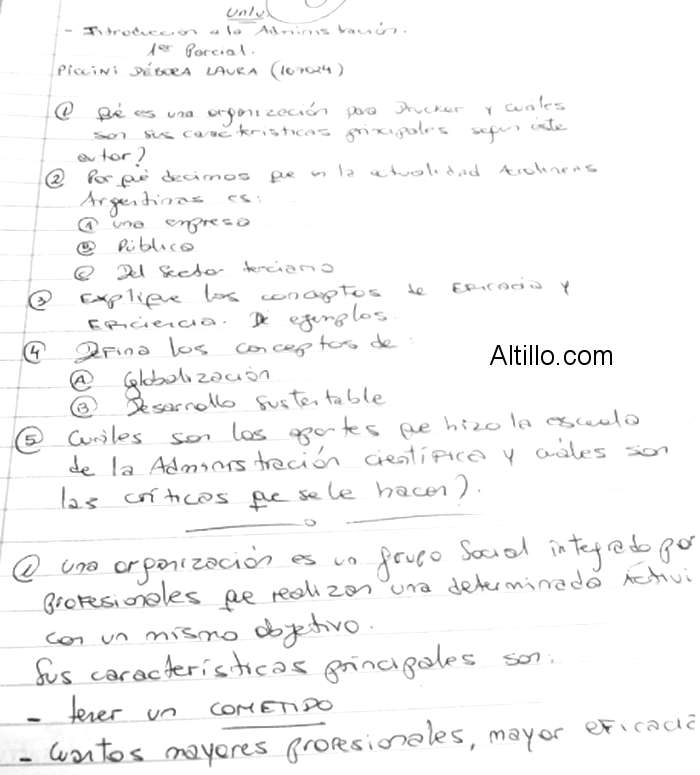 - Introducción a la Administración.
1er Parcial.
Piccini Débora Laura (107024)
① Qé es una organización para Drucker y cuales
son sus características principales según este
autor?
② Por qué decimos que en la actualidad Aerolíneas
Argentinas es:
Ⓐ una empresa
Ⓑ Pública
Ⓒ Del Sector terciario
③ Explique los conceptos de Eficacia y
Eficiencia. De ejemplos
④ Defina los conceptos de:
Altillo.com
Ⓐ Globalización
Ⓑ Desarrollo Sustentable
⑤ Cuáles son los aportes que hizo la escuela
de la Administración científica y cuáles son
las críticas que se le hacen).
① Una organización es un grupo Social integrado por
profesionales que realizan una determinada Activi
con un mismo objetivo.
Sus características principales son:
- tener un COMETIDO
- Cuantos mayores profesionales, mayor eficacia